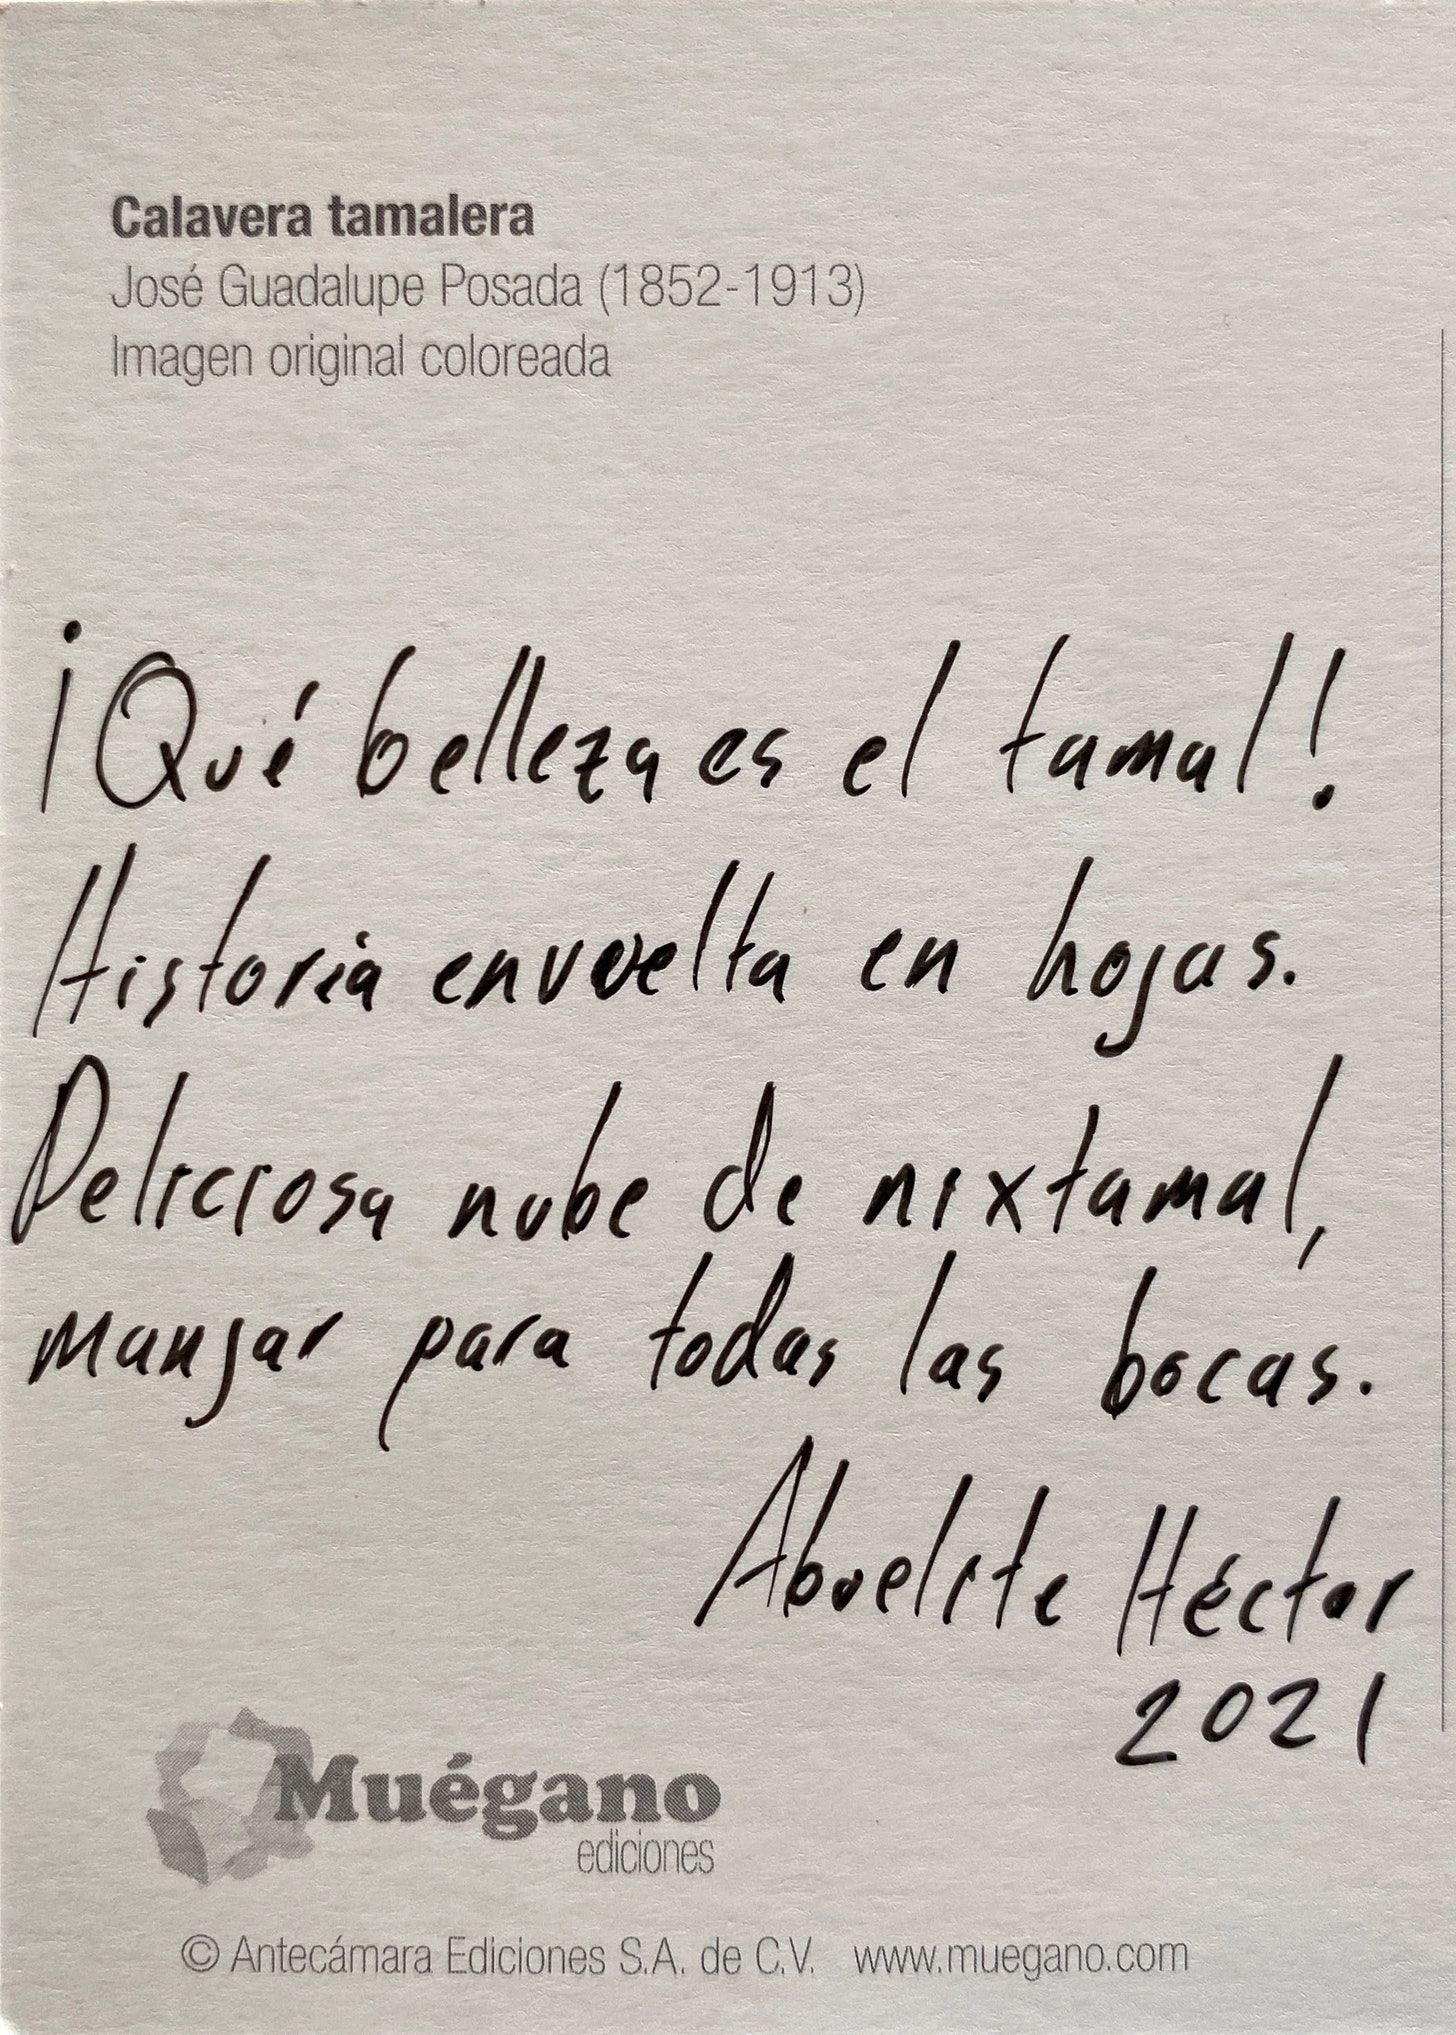 Calavera tamalera
José Guadalupe Posada (1852-1913)
Imagen original coloreada
¡Qué belleza es el tamal!
Historia envuelta en hojas.
Deliciosa nube de nixtamal,
manjar para todas las bocas.
Abuelite Héctor
2021
Muégano
ediciones
© Antecámara Ediciones S.A. de C.V. www.muegano.com